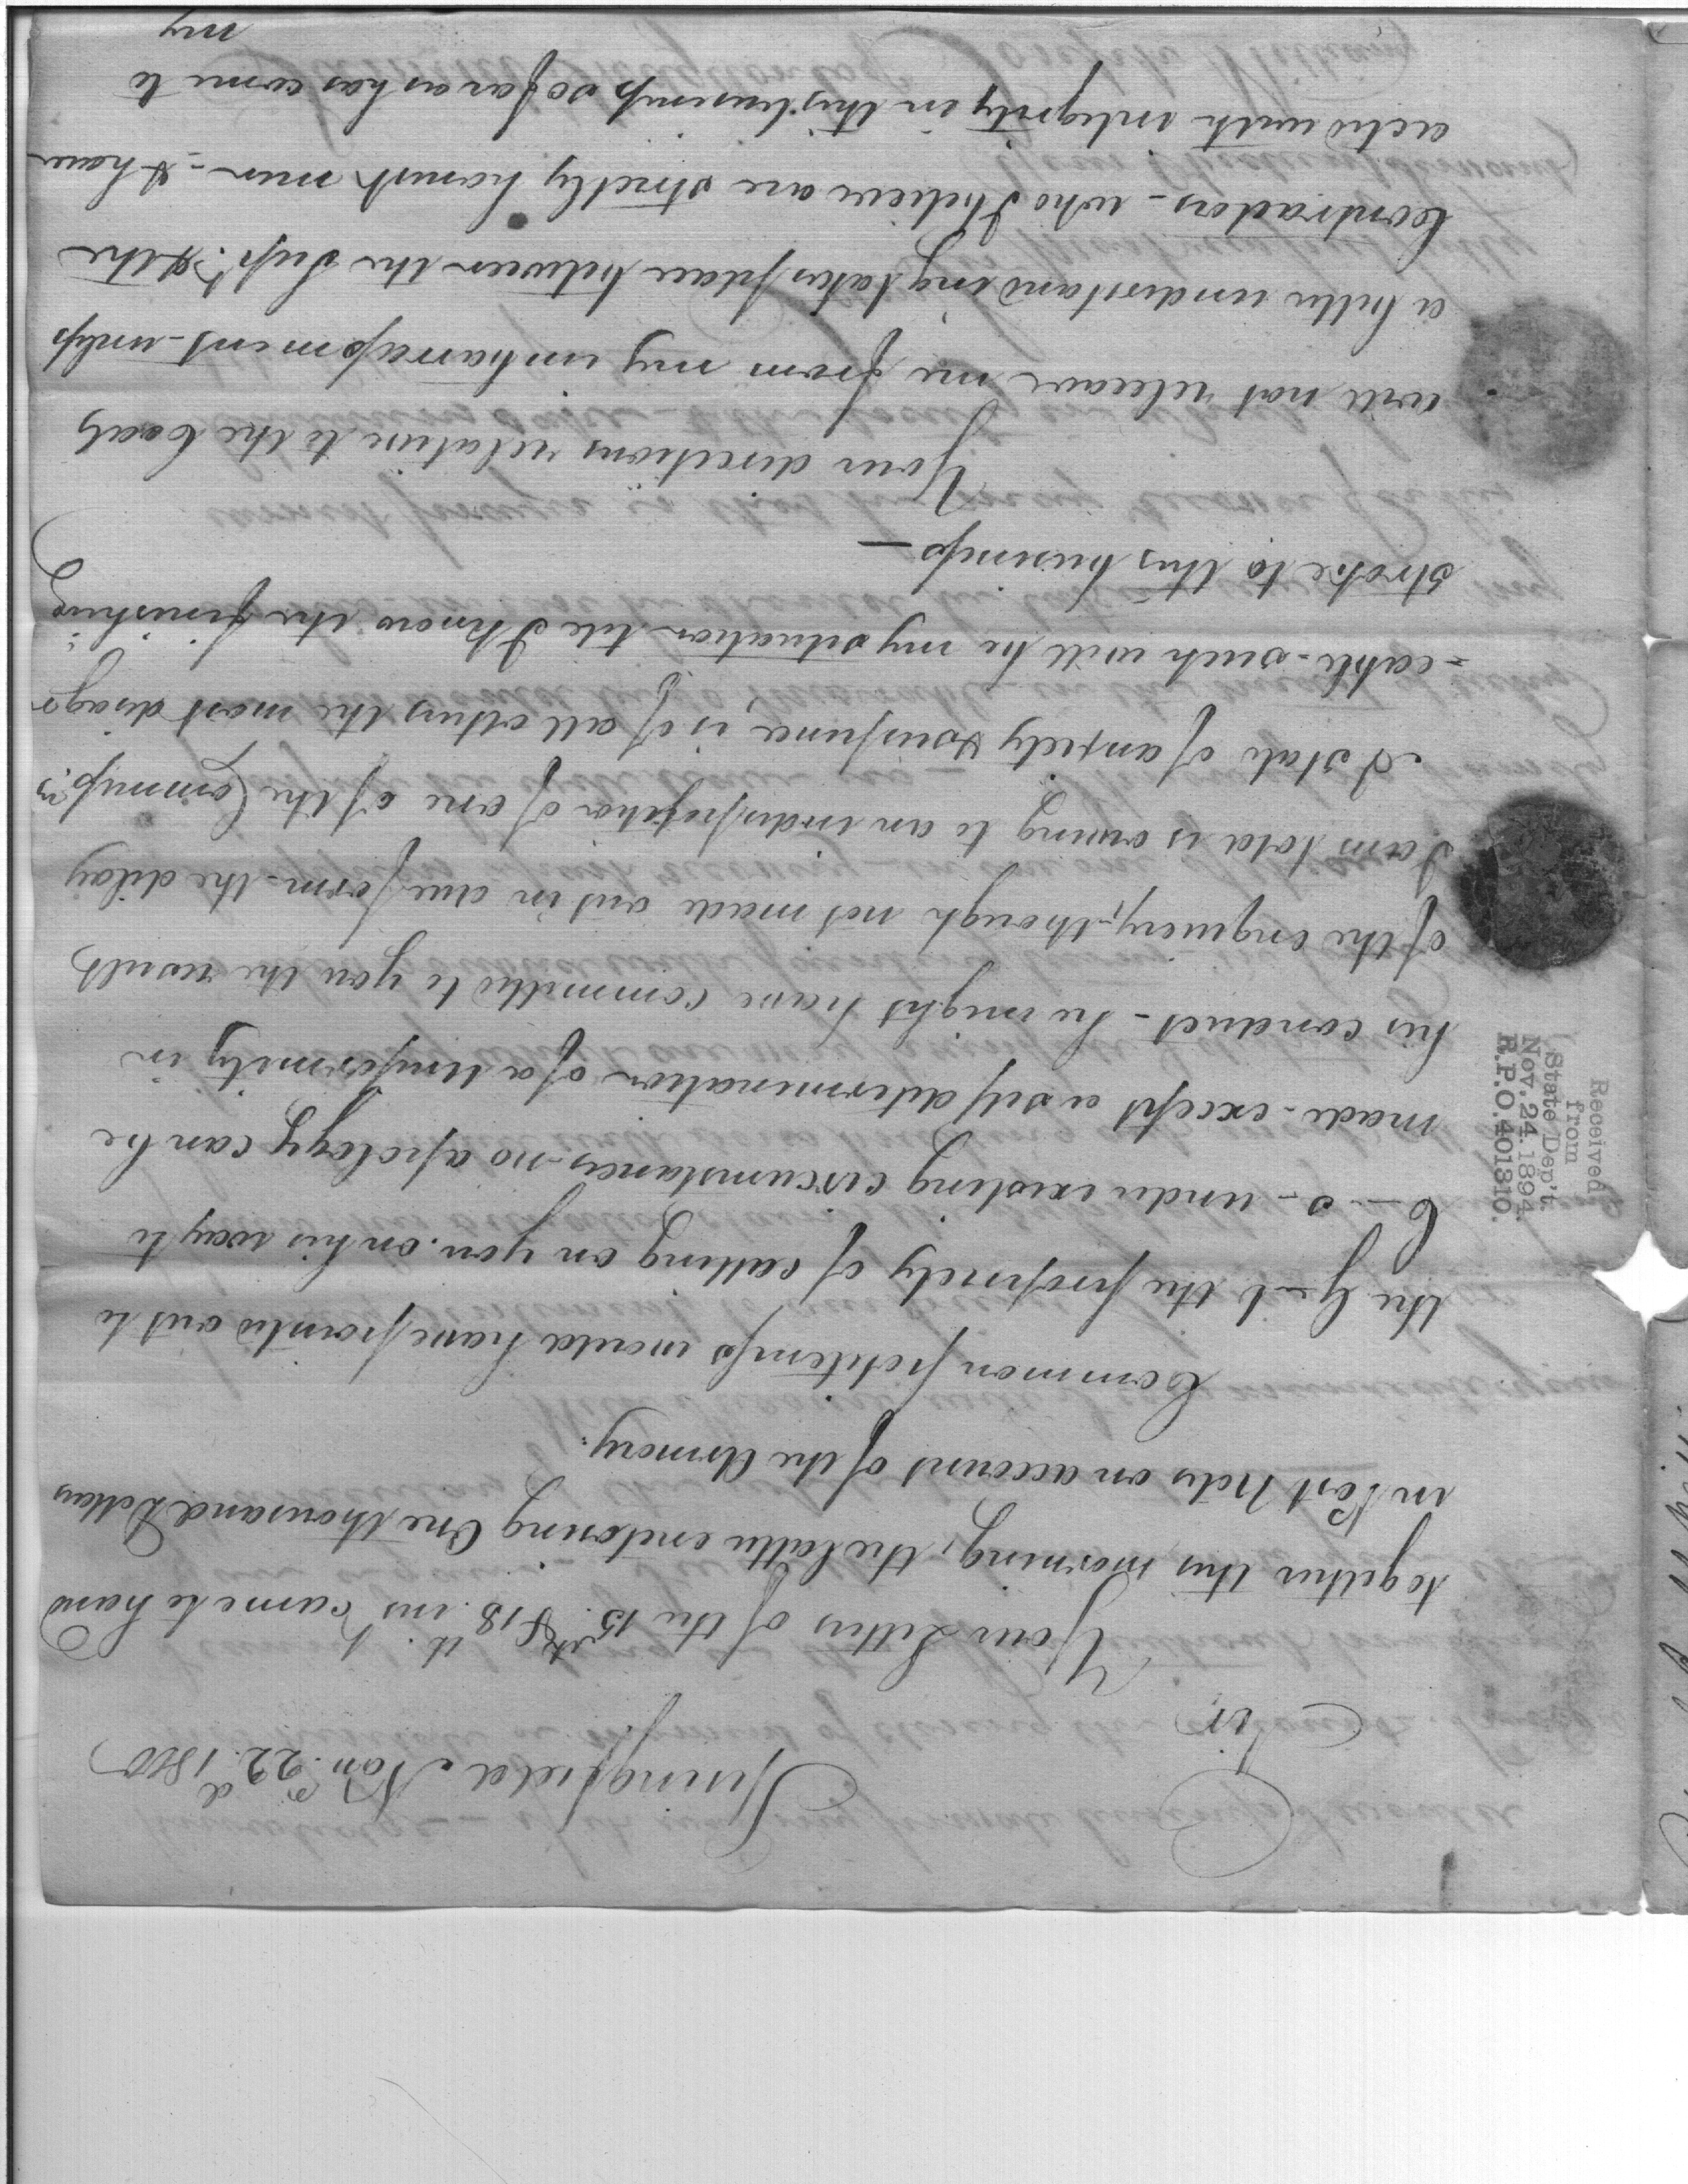 Springfield Nov. 22d. 1800
Sir
Your Letters of the 15th & 18th. ins came to hand
together this morning, the latter enclosing One thousand Dollars
in Post Notes on account of the Armory.
Common politeness would have pointed out to
the G—l the propriety of calling on you on his way to
C—o - under existing circumstances no apology can be
made - except a self determination of a Uniformity in
his conduct - he might have committed to you the result
of the enquiery, though not made out in due form - the delay
I am told is owing to an indisposition of one of the Commissrs
A State of anxiety & suspence, is of all others the most disagre-
-eable - such will be my situation till I know the finishing
stroke to this business —
Your directions relative to the Coats
will not releave me from my imbarrassment - unless
a better understanding takes place between the Supt. & the
Contractors - who I believe are strictly honest men - & have
acted with integrity in this business so far as has come to
my
Received
from
State Dep't.
Nov. 24. 1894.
R.P.O. 401310.